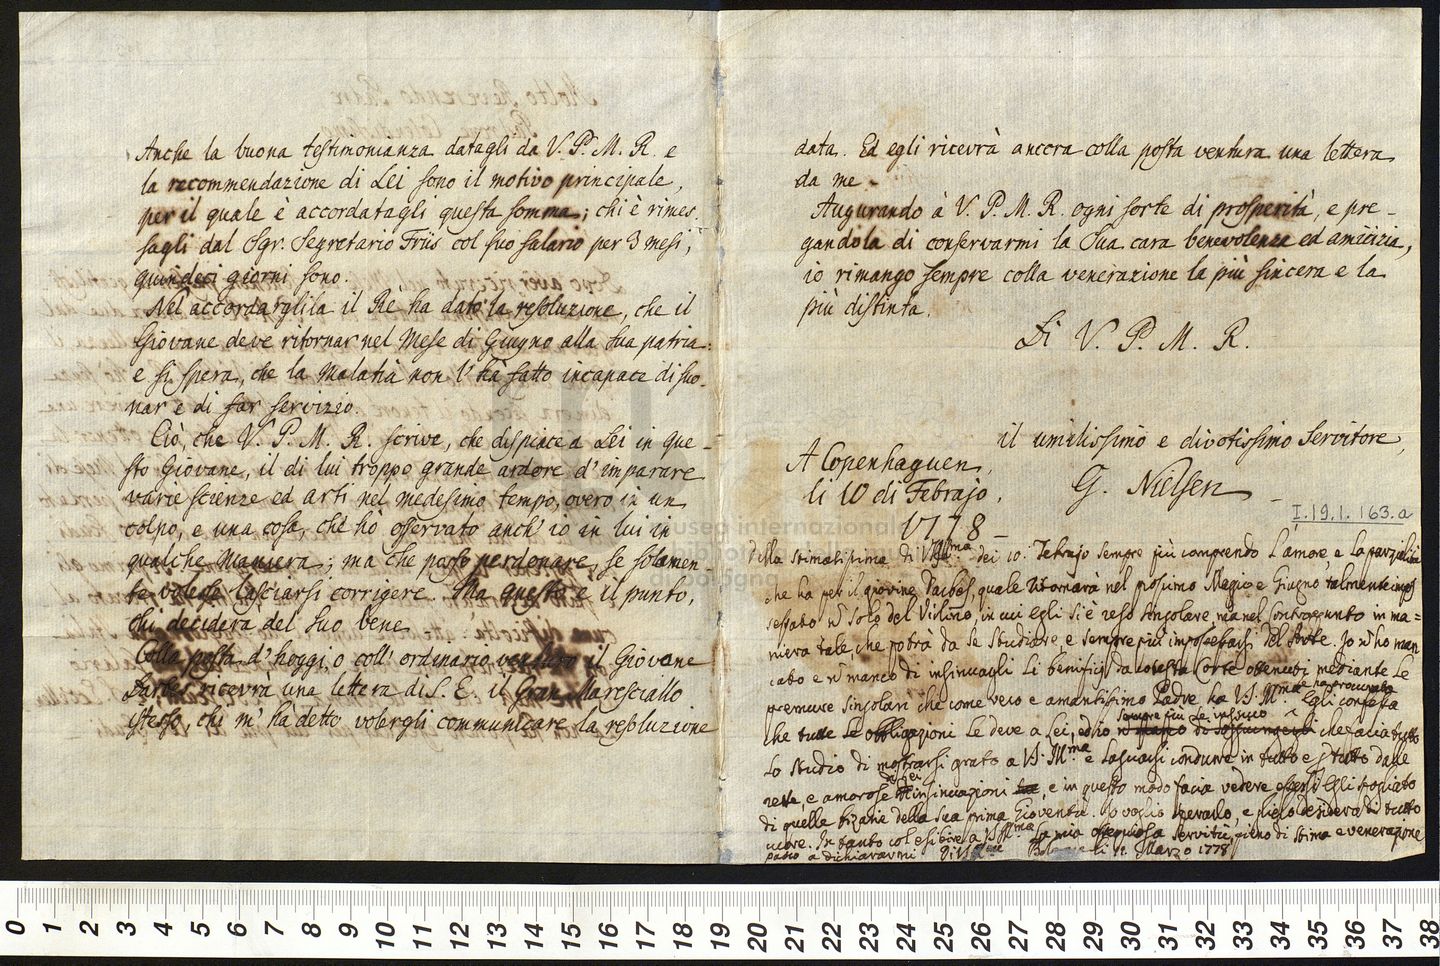 Anche la buona testimonianza datagli da V. P. M. R. e
la recommendazione di Lei sono il motivo principale,
per il quale è accordatagli questa somma; chi è rimes-
sagli dal Sgr. Segretario Friis col suo salario per 3 mesi,
quindeci giorni sono.
Nel accordarglila il Re ha dato la resoluzione, che il
Giovane deve ritornar nel Mese di Giugno alla sua patria:
e si spera, che la Malatià non l'hà fatto incapace di suo-
nar e di far servizio.
Ciò, che V. P. M. R. scrive, che dispiace a Lei in que-
sto Giovane, il di lui troppo grande ardore d'imparare
varie scienze ed arti nel medesimo tempo, overo in un
colpo, e una cosa, che hò osservato anch' io in lui in
qualche maniera; ma che posso perdonare, se solamen-
te volesse lasciarsi corrigere. Ma questo e il punto,
chi deciderà del suo bene.
Colla posta d'hoggi, o coll' ordinario venturo il Giovane
Darbes ricevrà una lettera di S. E. il Gran Maresciallo
istesso, chi m' hà detto volergli communicare la resoluzione
data. Ed egli ricevrà ancora colla posta ventura una lettera
da me.
Augurando à V. P. M. R. ogni sorte di prosperità, e pre-
gandola di conservarmi la Sua cara benevolenza ed amicizia,
io rimango sempre colla venerazione la più sincera e la
più distinta.
Di V. P. M. R.
il umilissimo e divotissimo Servitore,
A Copenhaguen,
li 10 di Febrajo.
G. Nielsen
1778
I.19.1.163.a
museo internazionale
biblioteca della musica
di bologna
Dalla stimatissima di V. S. Illma dei 10. Febrajo sempre più comprendo l'amore, e la parzialità
che ha per il giovine Darbes, quale ritornarà nel prossimo Magio e Giugno, talmente
nò solo del Violino, in cui egli si è reso singolare, ma nel Contrappunto in ma=
niera tale che potrà da se studiare e sempre più impossesarsi del Arte. Io nò ho man
cato e nò manco di insinuargli li benifici da cotesta Corte ottenuti mediante le
premure singolari che come vero e amantissimo Padre ha V. S. Illma Egli confessa
che tutte le obbligazioni le deve a Lei, ed io sempre più che facia tutto
lo studio di mostrarsi grato a V. S. Illma e lasciarsi condurre in tutto e p tutto dalle
rette, e amorose insinuazioni, e in questo modo facia vedere essersi egli spogliato
di quelle bizarie della sua prima Gioventù. Io voglio sperarlo, e desidero di tutto
cuore. In tanto col esibire a V. S. Illma la mia ossequiosa servitù, pieno di stima e venerazione
passo a dichiararmi Di V. S. Bologna li 11. Marzo 1778
0 1 2 3 4 5 6 7 8 9 10 11 12 13 14 15 16 17 18 19 20 21 22 23 24 25 26 27 28 29 30 31 32 33 34 35 36 37 38